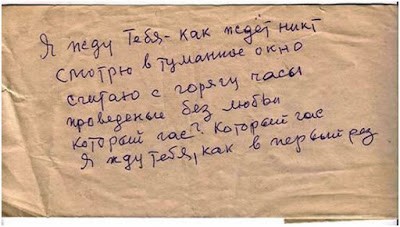 Я жду Тебя - как ждёт никт
смотрю в туманное окно
считаю с горячу часы
проведеные без любви
который час? Который час
Я жду Тебя, как в первый раз